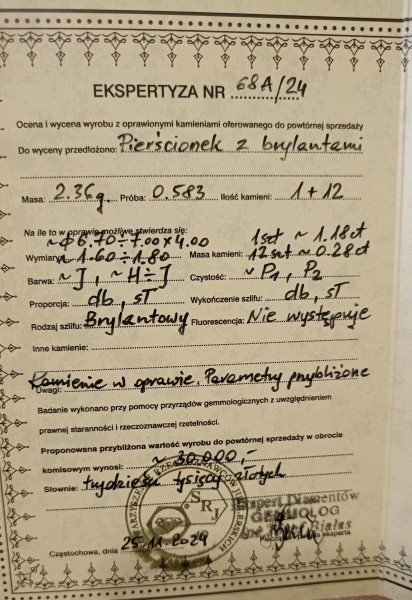 EKSPERTYZA NR 68A/24
Ocena i wycena wyrobu z oprawionymi kamieniami oferowanego do powtórnej sprzedaży
Do wyceny przedłożono: Pierścionek z brylantami
Masa: 2.36g. Próba: 0.583 Ilość kamieni: 1 + 12
Na ile to w oprawie możliwe stwierdza się:
~ Φ 6.70 ÷ 7.00 x 4.00 1szt ~ 1.18ct
Wymiary: ~ 1.60 ÷ 1.80 Masa kamieni: 12szt ~ 0.28ct
Barwa: ~ J, ~ H÷J Czystość: ~ P1, P2
Proporcja: db, sT Wykończenie szlifu: db, sT
Rodzaj szlifu: Brylantowy Fluorescencja: Nie występuje
Inne kamienie:
Kamienie w oprawie. Parametry przybliżone
Uwagi:
Badanie wykonano przy pomocy przyrządów gemmologicznych z uwzględnieniem
prawnej staranności i rzeczoznawczej rzetelności.
Proponowana przybliżona wartość wyrobu do powtórnej sprzedaży w obrocie
komisowym wynosi: ~ 30.000,-
Słownie: trzydzieści tysięcy złotych
SRJ
Ekspert Diamentów
GEMMOLOG
Białas
Częstochowa, dnia 25.11.2024